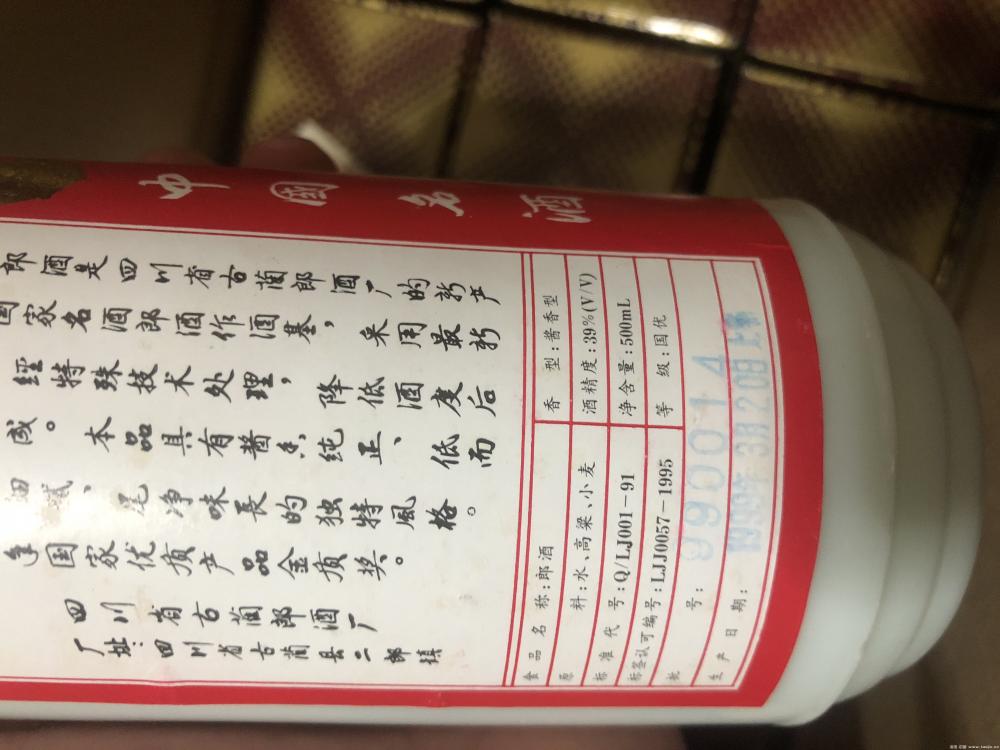 中國名酒
郎酒是四川省古蔺郎酒厂的新产
国家名酒郎酒作酒基，采用最新
经特殊技术处理，降低酒度后
成。本品具有酱香纯正、低而
细腻、尾净味長的独特風格。
国家优质产品金质奖。
四川省古蔺郎酒厂
厂址：四川省古蔺县二郎镇
食品名称：郎酒
香型：酱香型
原料：水、高粱、小麦
酒精度：39%(V/V)
标准代号：Q/LJ001-91
净含量：500mL
标签认可编号：LJJ0057-1995
等级：国优
批号：990014
生产日期：1999年3月20日